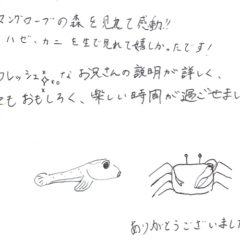 マングローブの森を見れて感動!!
ハゼ、カニを生で見れて嬉しかったです!
フレッシュなお兄さんの説明が詳しく、
てもおもしろく、楽しい時間が過ごせまし
ありがとうございました